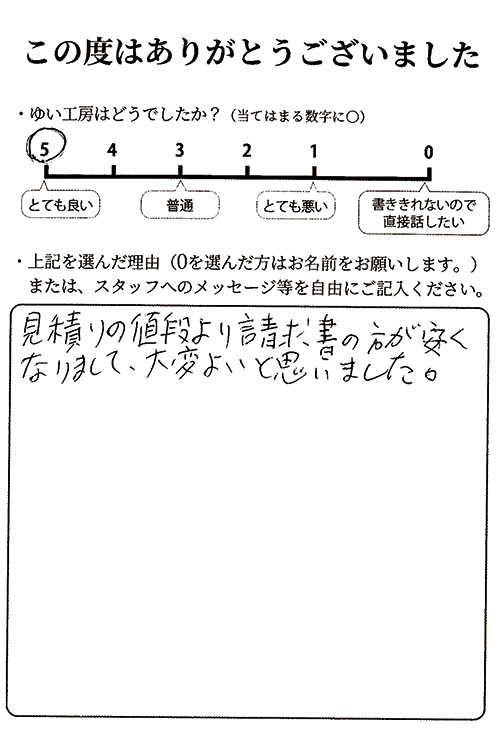 この度はありがとうございました
・ゆい工房はどうでしたか？（当てはまる数字に〇）
5 4 3 2 1 0
とても良い 普通 とても悪い 書ききれないので
直接話したい
・上記を選んだ理由（0を選んだ方はお名前をお願いします。）
または、スタッフへのメッセージ等を自由にご記入ください。
見積りの値段より請求書の方が安く
なりまして、大変よいと思いました。